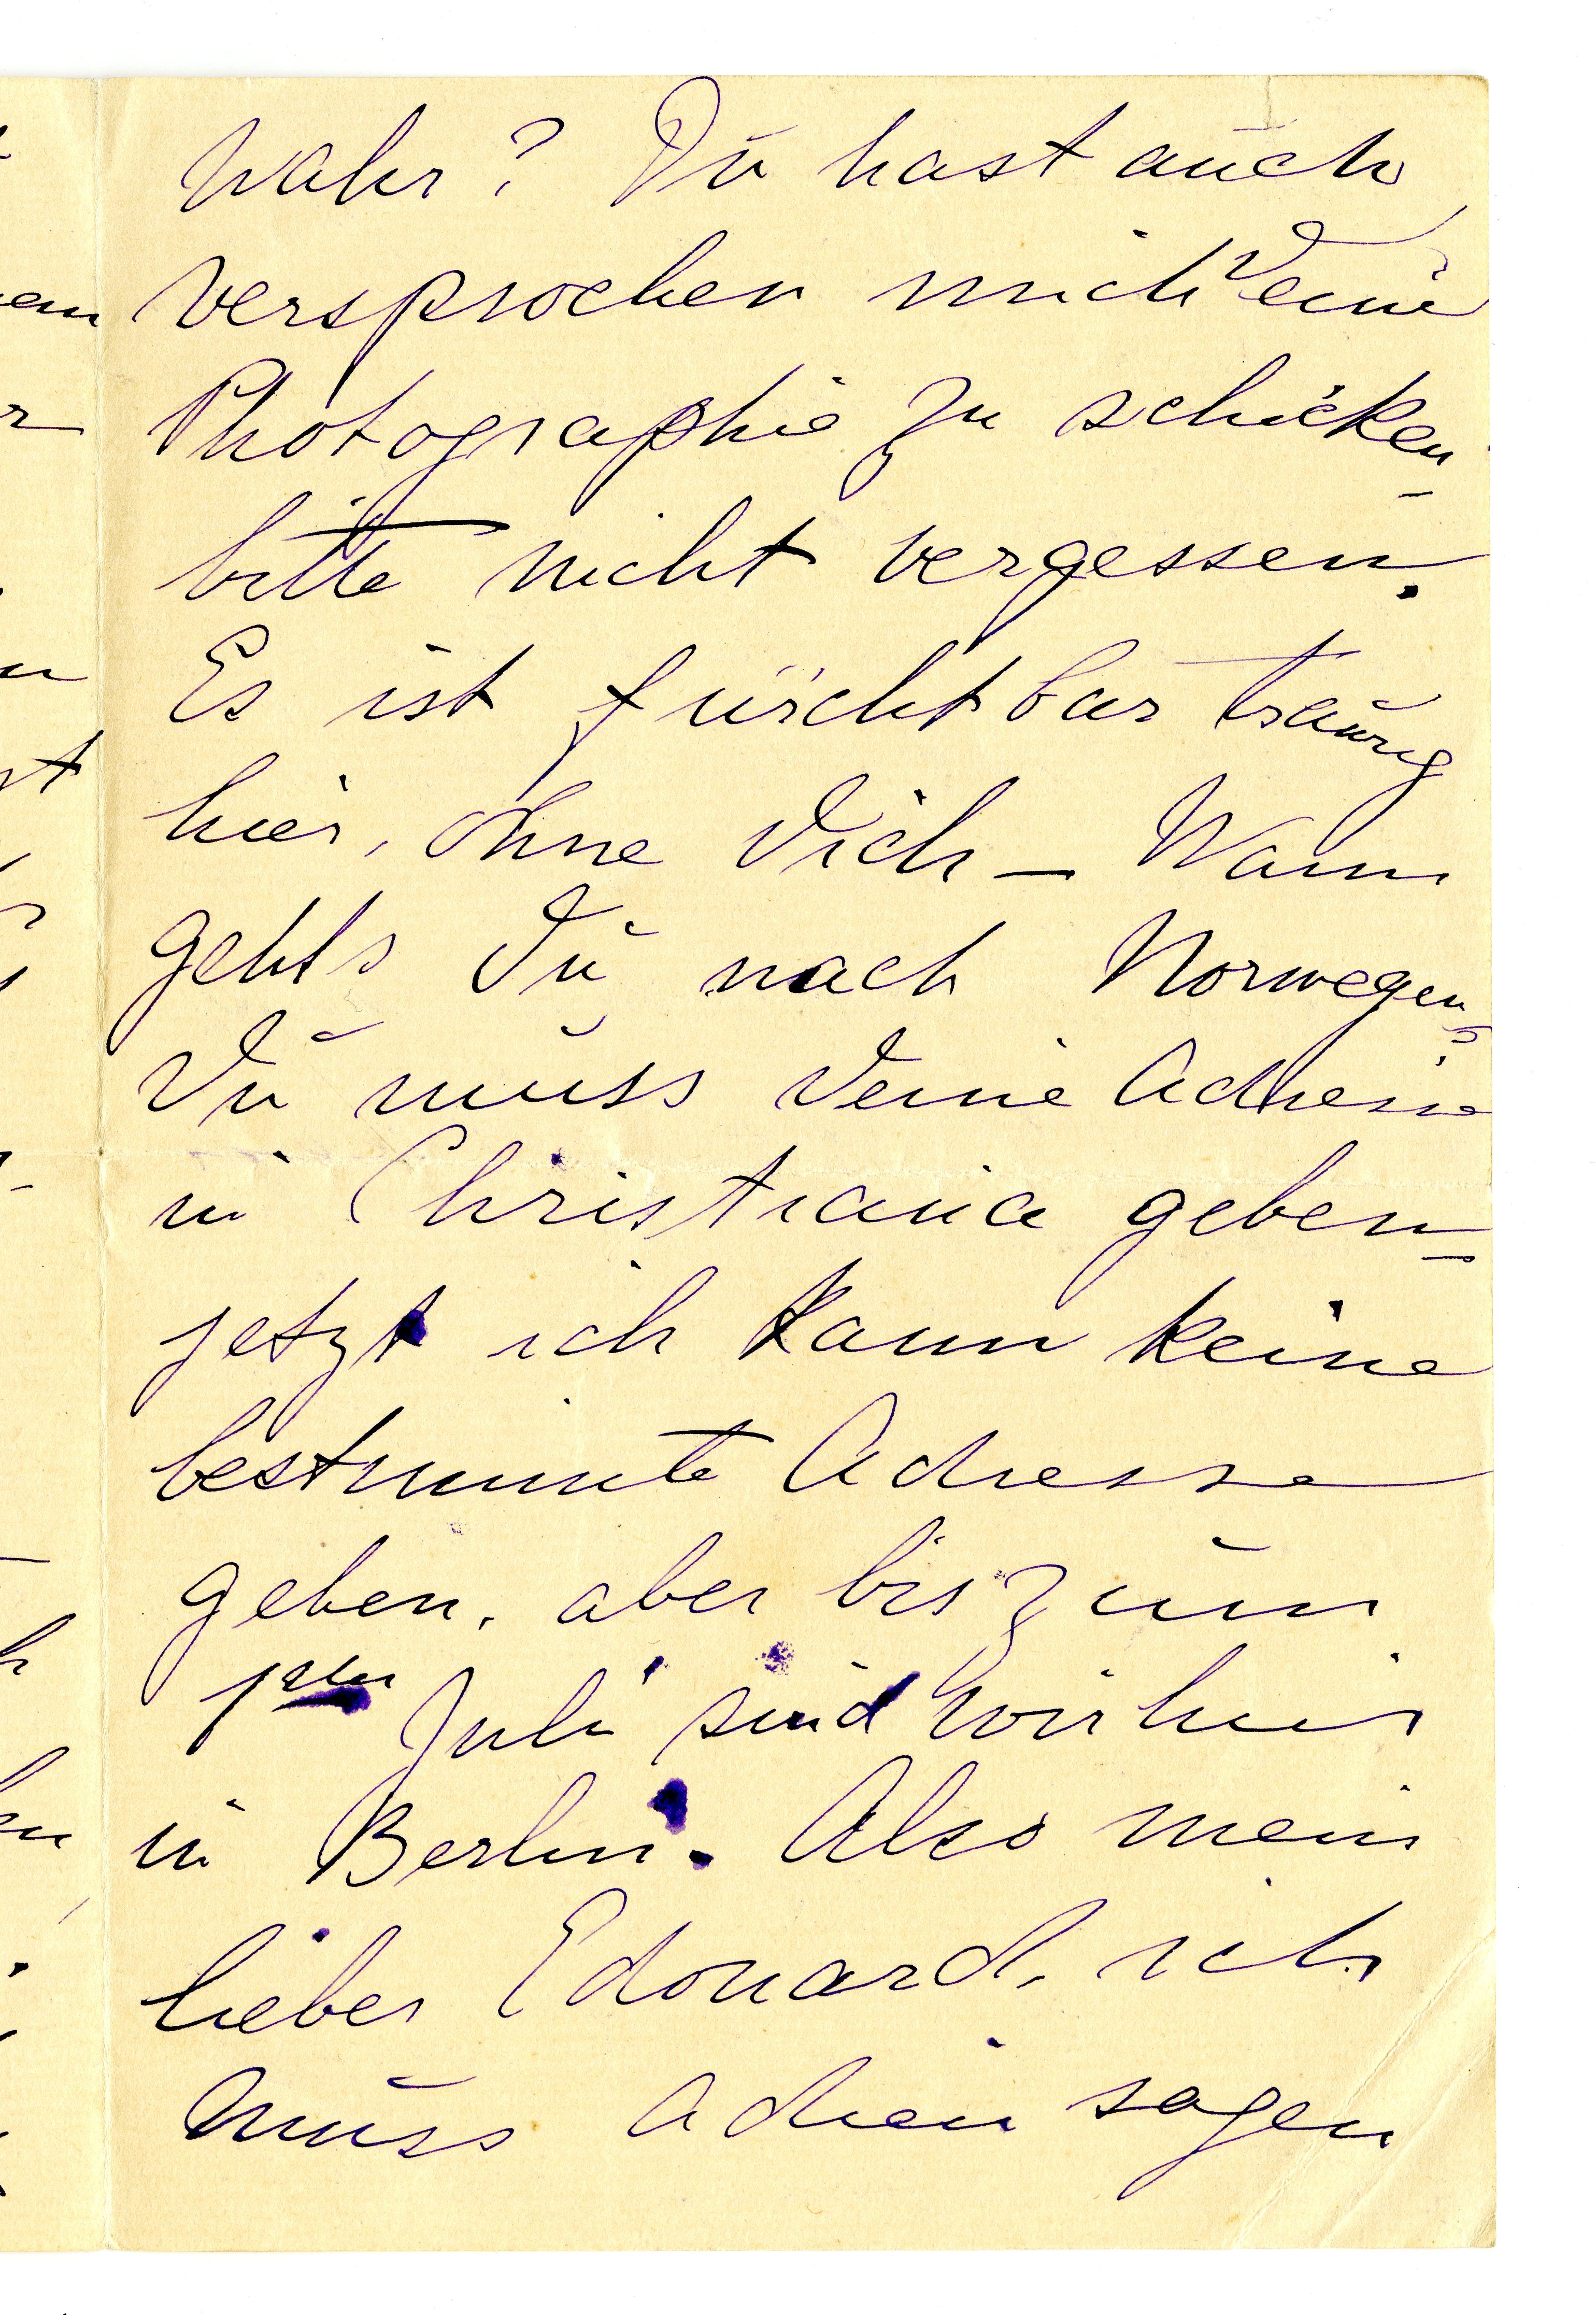 wahr? Du hast auch
versprochen mich Deine
Photographie zu schicken –
bitte nicht vergessen.
Es ist fürchtbar traurig
hier, ohne Dich – Wann
gehts Du nach Norwegen?
Du muss Deine Adresse
in Christiania geben –
jetzt ich kann keine
bestimmte Adresse
geben, aber bis zum
1sten Juli sind wir hier
in Berlin. Also mein
lieber Edouard, ich
muss Adieu sagen